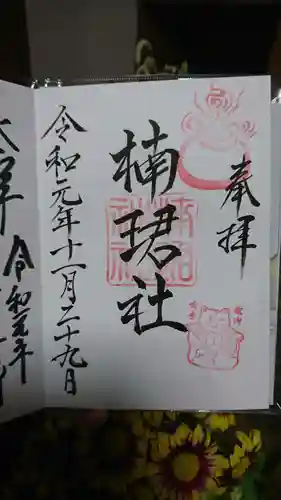 奉拝
楠珺社
令和元年十一月二十九日
令和元年